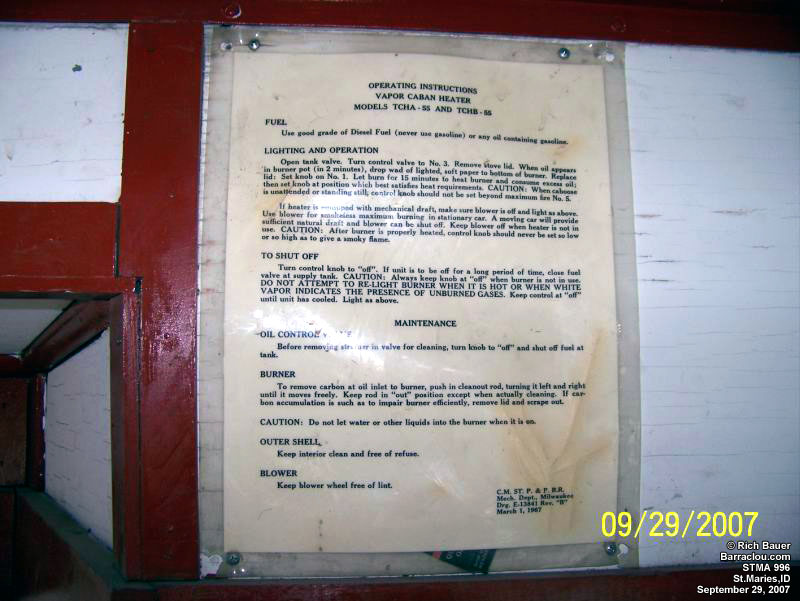 OPERATING INSTRUCTIONS
VAPOR CABAN HEATER
MODELS TCHA-55 AND TCHB-55
FUEL
Use good grade of Diesel Fuel (never use gasoline) or any oil containing gasoline.
LIGHTING AND OPERATION
Open tank valve. Turn control valve to No. 3. Remove stove lid. When oil appears
in burner pot (in 2 minutes), drop wad of lighted, soft paper to bottom of burner. Replace
lid: Set knob on No. 1. Let burn for 15 minutes to heat burner and consume excess oil;
then set knob at position which best satisfies heat requirements. CAUTION: When caboose
is unattended or standing still, control knob should not be set beyond maximum fire No. 5.
If heater is equipped with mechanical draft, make sure blower is off and light as above.
Use blower for smokeless maximum burning in stationary car. A moving car will provide
sufficient natural draft and blower can be shut off. Keep blower off when heater is not in
use. CAUTION: After burner is properly heated, control knob should never be set so low
or so high as to give a smoky flame.
TO SHUT OFF
Turn control knob to "off". If unit is to be off for a long period of time, close fuel
valve at supply tank. CAUTION: Always keep knob at "off" when burner is not in use.
DO NOT ATTEMPT TO RE-LIGHT BURNER WHEN IT IS HOT OR WHEN WHITE
VAPOR INDICATES THE PRESENCE OF UNBURNED GASES. Keep control at "off"
until unit has cooled. Light as above.
MAINTENANCE
OIL CONTROL VALVE
Before removing strainer in valve for cleaning, turn knob to "off" and shut off fuel at
tank.
BURNER
To remove carbon at oil inlet to burner, push in cleanout rod, turning it left and right
until it moves freely. Keep rod in "out" position except when actually cleaning. If car-
bon accumulation is such as to impair burner efficiently, remove lid and scrape out.
CAUTION: Do not let water or other liquids into the burner when it is on.
OUTER SHELL
Keep interior clean and free of refuse.
BLOWER
Keep blower wheel free of lint.
C.M. ST. P. & P. R.R.
Mech. Dept., Milwaukee
Drg. E-13841 Rev. "B"
March 1, 1967
09/29/2007
© Rich Bauer
Barraclou.com
STMA 996
St.Maries,ID
September 29, 2007